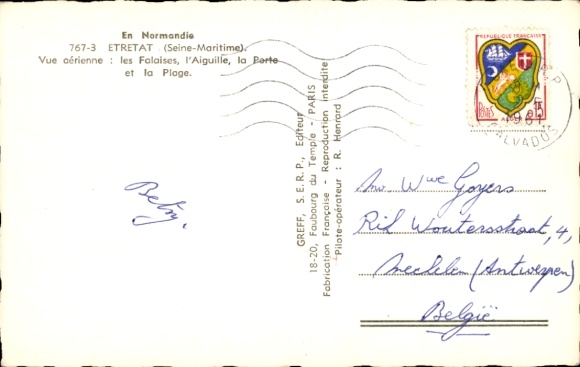 En Normandie
767-3 ETRETAT (Seine-Maritime).
Vue aérienne : les Falaises, l'Aiguille, la Porte
et la Plage.
Betsy.
GREFF, S.E.R.P., Editeur
18-20, Faubourg du Temple - PARIS
Fabrication Française - Reproduction interdite
Pilote-opérateur : R. Henrard
REPUBLIQUE FRANÇAISE
POSTES
15
CALVADOS
Wwe Goyers
Rik Woutersstraat, 4,
Mechelen (Antwerpen)
België